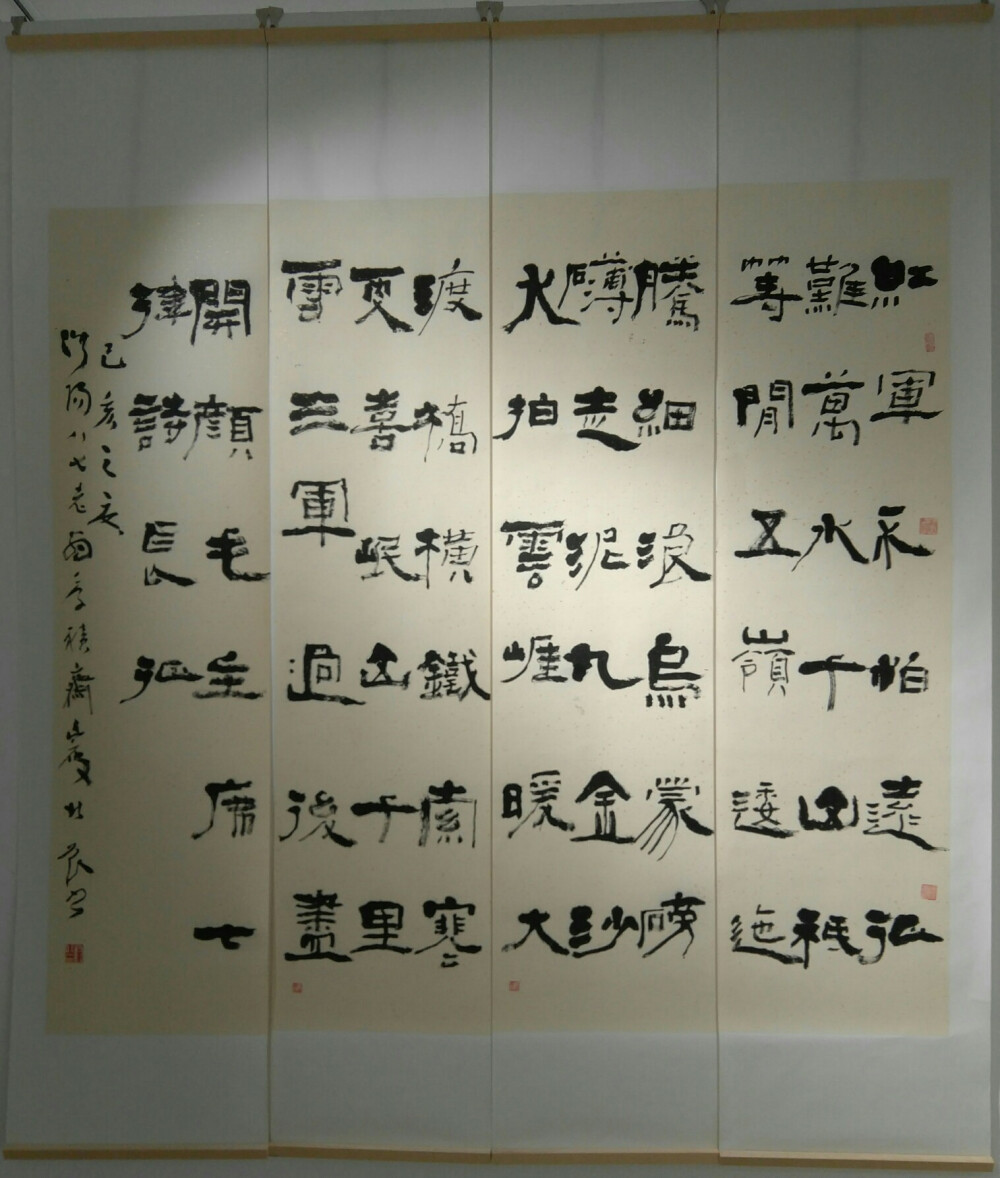 紅軍不怕遠征
難萬水千山祇
等閒五嶺逶迤
騰細浪烏蒙磅
礴走泥丸金沙
水拍雲崖暖大
渡橋橫鐵索寒
更喜岷山千里
雪三軍過後盡
開顏毛主席七
律詩長征
己亥之
陽八七老